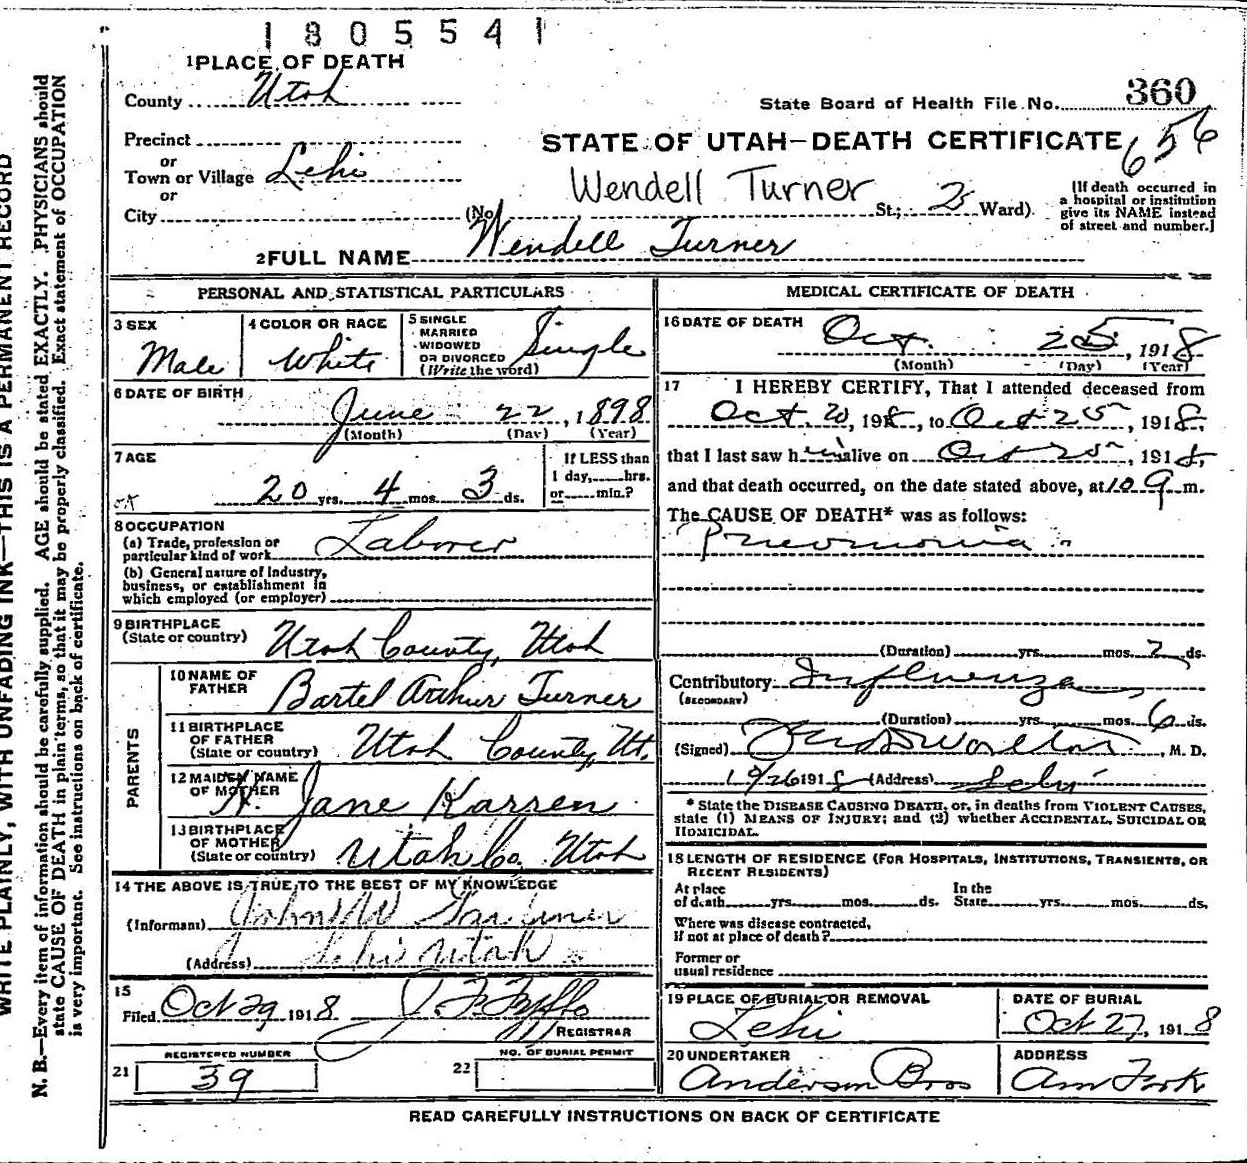 1805541
1 PLACE OF DEATH
County Utah
State Board of Health File No. 360
Precinct
STATE OF UTAH—DEATH CERTIFICATE 656
or
Town or Village Lehi
or
Wendell Turner
City (No. St.; 2 Ward).
[If death occurred in a hospital or institution give its NAME instead of street and number.]
2 FULL NAME Wendell Turner
PERSONAL AND STATISTICAL PARTICULARS
3 SEX Male
4 COLOR OR RACE White
5 SINGLE MARRIED WIDOWED OR DIVORCED (Write the word) Single
6 DATE OF BIRTH
June 22, 1898
(Month) (Day) (Year)
7 AGE
20 yrs. 4 mos. 3 ds.
If LESS than
1 day, hrs.
or min.?
8 OCCUPATION
(a) Trade, profession or
particular kind of work Laborer
(b) General nature of Industry,
business, or establishment in
which employed (or employer)
9 BIRTHPLACE
(State or country) Utah County, Utah
PARENTS
10 NAME OF
FATHER Bartel Arthur Turner
11 BIRTHPLACE
OF FATHER
(State or country) Utah County, Ut.
12 MAIDEN NAME
OF MOTHER H. Jane Karren
13 BIRTHPLACE
OF MOTHER
(State or country) Utah Co. Utah
14 THE ABOVE IS TRUE TO THE BEST OF MY KNOWLEDGE
(Informant) John W
(Address) Lehi Utah
15
Filed Oct 29 1918
REGISTRAR
REGISTERED NUMBER
21 39
NO. OF BURIAL PERMIT
22
MEDICAL CERTIFICATE OF DEATH
16 DATE OF DEATH Oct. 25, 1918
(Month) (Day) (Year)
17 I HEREBY CERTIFY, That I attended deceased from
Oct. 20, 1918, to Oct 25, 1918,
that I last saw him alive on Oct 25, 1918,
and that death occurred, on the date stated above, at 10 m.
The CAUSE OF DEATH* was as follows:
Pneumonia
(Duration) yrs. mos. 2 ds.
Contributory Influenza
(SECONDARY)
(Duration) yrs. mos. 6 ds.
(Signed) Worlton, M. D.
10/26 1918 (Address) Lehi
* State the DISEASE CAUSING DEATH, or, in deaths from VIOLENT CAUSES,
state (1) MEANS OF INJURY; and (2) whether ACCIDENTAL, SUICIDAL OR
HOMICIDAL.
18 LENGTH OF RESIDENCE (FOR HOSPITALS, INSTITUTIONS, TRANSIENTS, OR
RECENT RESIDENTS)
At place
of death yrs. mos. ds.
In the
State yrs. mos. ds.
Where was disease contracted,
if not at place of death?
Former or
usual residence
19 PLACE OF BURIAL OR REMOVAL
Lehi
DATE OF BURIAL
Oct 27, 1918
20 UNDERTAKER
Anderson Bros
ADDRESS
Am Fork
READ CAREFULLY INSTRUCTIONS ON BACK OF CERTIFICATE
WRITE PLAINLY, WITH UNFADING INK—THIS IS A PERMANENT RECORD
N. B.—Every item of information should be carefully supplied. AGE should be stated EXACTLY. PHYSICIANS should
state CAUSE OF DEATH in plain terms, so that it may be properly classified. Exact statement of OCCUPATION
is very important. See instructions on back of certificate.